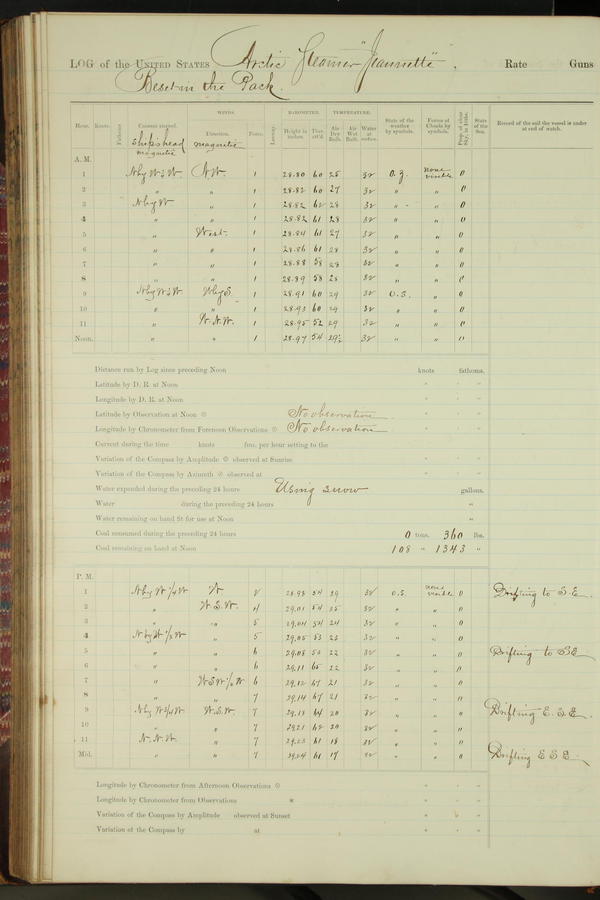 LOG of the UNITED STATES Arctic Steamer "Jeannette". Rate Guns
Beset in the Pack.
WINDS. BAROMETER. TEMPERATURE.
Hour. Knots. Fathoms. Courses steered. Direction. Force. Leeway. Height in inches. Ther. att'd. Air Dry Bulb. Air Wet Bulb. Water at surface. State of the weather by symbols. Forms of Clouds by symbols. Prop. of clear Sky, in 10ths. State of the Sea. Record of the sail the vessel is under at end of watch.
Ship's head magnetic magnetic
A. M.
1 N by W ½ W N W. 1 28.80 60 25 32 O. g. none visible 0
2 " " 1 28.82 60 27 32 " " 0
3 N by W " 1 28.82 62 28 32 " " 0
4 " " 1 28.82 61 28 32 " " 0
5 " West. 1 28.84 61 27 32 " " 0
6 " " 1 28.86 61 28 32 " " 0
7 " " 1 28.88 58 28 32 " " 0
8 " " 1 28.89 58 28 32 " " 0
9 N by W ½ W W by S. 1 28.91 60 29 32 O. S. " 0
10 " " 1 28.93 60 29 32 " " 0
11 " W. N. W. 1 28.95 52 29 32 " " 0
Noon. " " 1 28.97 54 29½ 32 " " 0
Distance run by Log since preceding Noon knots fathoms.
Latitude by D. R. at Noon ° ' "
Longitude by D. R. at Noon ° ' "
Latitude by Observation at Noon No observation ° ' "
Longitude by Chronometer from Forenoon Observations No observation ° ' "
Current during the time knots fms. per hour setting to the
Variation of the Compass by Amplitude observed at Sunrise ° ' "
Variation of the Compass by Azimuth observed at ° ' "
Water expended during the preceding 24 hours Using snow gallons.
Water during the preceding 24 hours "
Water remaining on hand fit for use at Noon "
Coal consumed during the preceding 24 hours 0 tons. 360 lbs.
Coal remaining on hand at Noon 108 " 1343 "
P. M.
1 N by W ¼ W W 2 28.98 54 29 32 O. S. none visible 0 Drifting to S. E.
2 " W S. W. 4 29.01 54 25 32 " " 0
3 " " 5 29.04 54 24 32 " " 0
4 N by W ½ W " 5 29.05 53 23 32 " " 0
5 " " 6 29.08 52 22 32 " " 0 Drifting to SE
6 " " 6 29.11 65 22 32 " " 0
7 " W S W ½ W 6 29.12 67 21 32 " " 0
8 " " 7 29.14 67 21 32 " " 0
9 N by W ¾ W W. S. W. 7 29.18 64 20 32 " " 0 Drifting E. S. E.
10 " " 7 29.21 62 20 32 " " 0
11 N. N. W. " 7 29.23 61 18 32 " " 0
Mid. " " 7 29.24 61 17 32 " " 0 Drifting E S E
Longitude by Chronometer from Afternoon Observations ° ' "
Longitude by Chronometer from Observations * ° ' "
Variation of the Compass by Amplitude observed at Sunset ° ' "
Variation of the Compass by at ° ' "